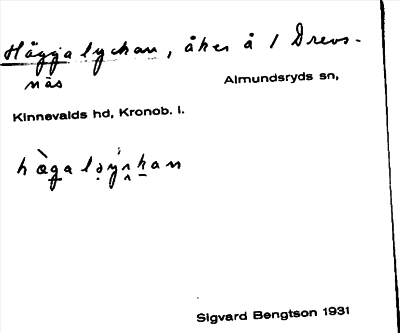 Häggalyckan, åker å 1 Drevs-
näs Almundsryds sn,
Kinnevalds hd, Kronob. l.
Sigvard Bengtson 1931